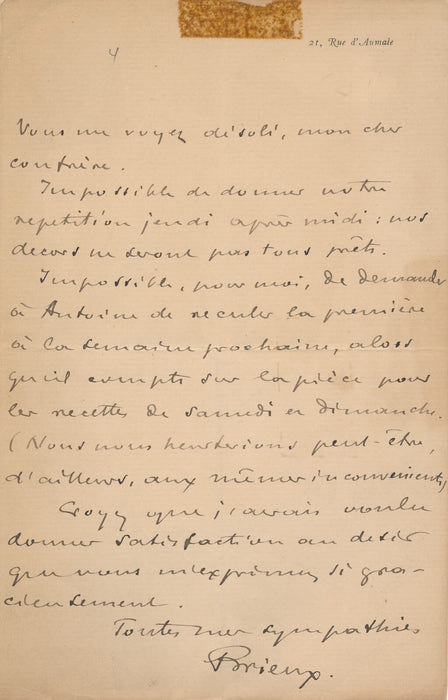 4
21, Rue d'Aumale
Vous me voyez désolé, mon cher
confrère.
Impossible de donner notre
repetition jeudi après midi : nos
decors ne seront pas tous prêts.
Impossible, pour moi, de demander
à Antoine de reculer la première
à la semaine prochaine, alors
qu'il compte sur la pièce pour
les recettes de samedi et dimanche.
(Nous nous heurterions peut-être,
d'ailleurs, aux mêmes inconvenients)
Croyez que j'aurais voulu
donner satisfaction au desir
que vous m'exprimez si gra-
cieusement.
Toutes mes sympathies
Brieux.